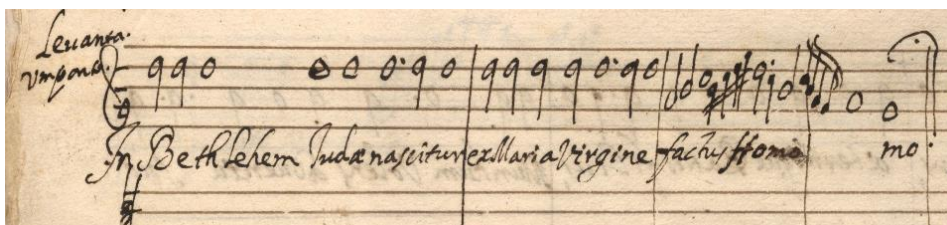 Levanta.
Vmponto.
In Bethlehem Judæ nascitur ex Maria Virgine factus Homo mo.